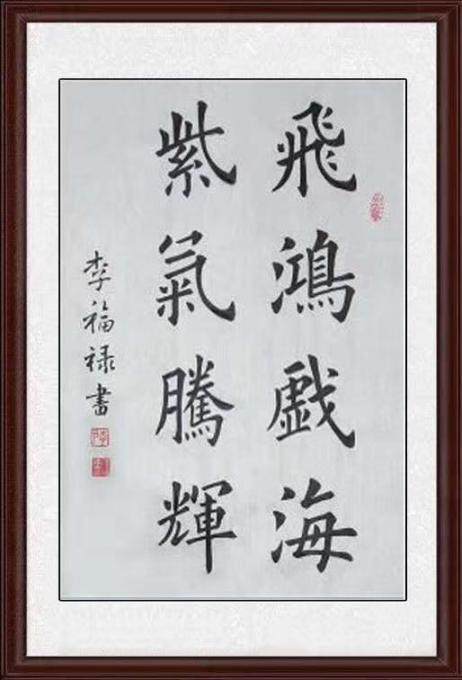 飛鴻戲海
紫氣騰輝
李福禄書